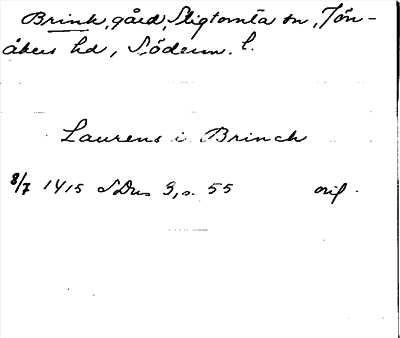 Brink, gård, Stigtomta sn, Jön-
åkers hd, Söderm. l.
Laurens i Brinck
8/7 1415 SDns 3, s. 55 orig.